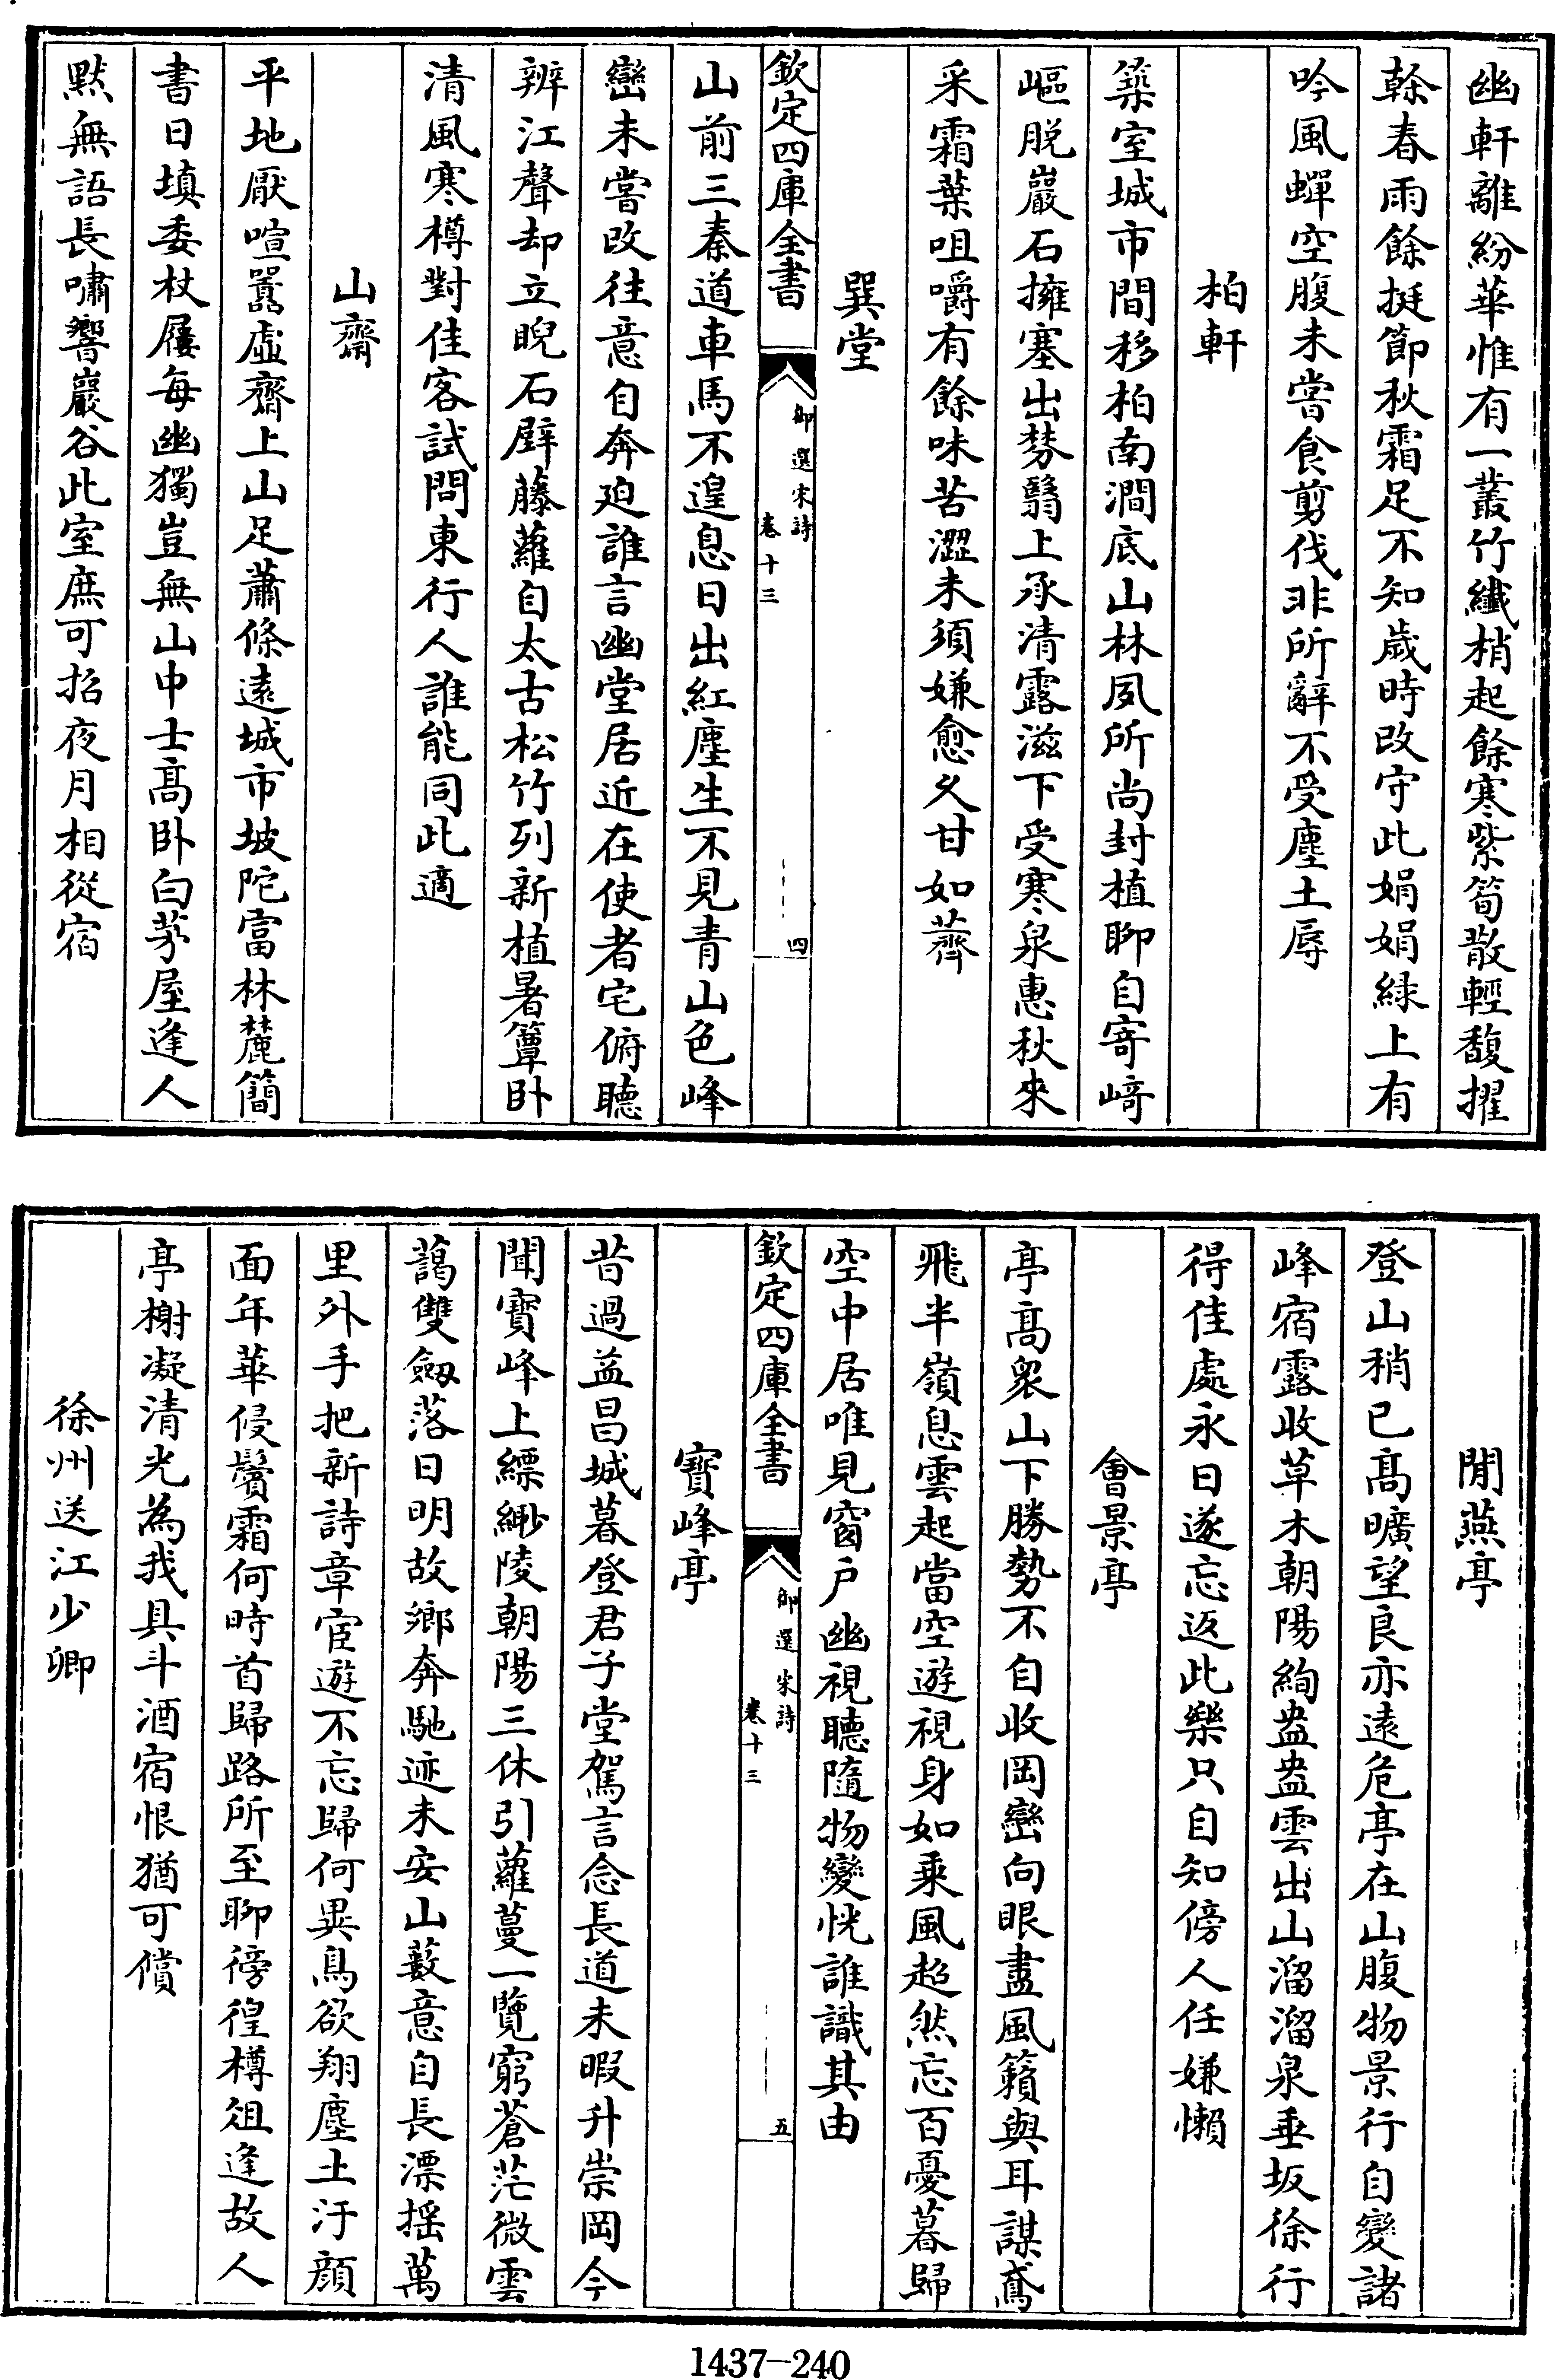 幽軒離紛華惟有一叢竹纖梢起餘寒紫筍散輕馥擢
榦春雨餘挺節秋霜足不知歲時改守此娟娟緑上有
吟風蟬空腹未嘗食剪伐非所辭不受塵土辱
柏軒
築室城市間移柏南澗底山林夙所尚封植聊自寄﨑
嶇脱巖石擁塞出棼翳上承清露滋下受寒泉惠秋來
采霜葉咀嚼有餘味苦澀未須嫌愈乆甘如薺
巽堂
欽定四庫全書
御選宋詩
卷十三
四
山前三秦道車馬不遑息日出紅塵生不見青山色峰
巒未嘗改往意自奔廹誰言幽堂居近在使者宅俯聽
辨江聲却立睨石壁藤蘿自太古松竹列新植暑簟卧
清風寒樽對佳客試問東行人誰能同此適
山齋
平地厭喧囂虛齋上山足蕭條遠城市坡陀富林麓簡
書日填委杖屨每幽獨豈無山中士髙卧白茅屋逢人
默無語長嘯響巖谷此室庶可招夜月相從宿
閒燕亭
登山稍已髙曠望良亦遠危亭在山腹物景行自變諸
峰宿露收草木朝陽絢盎盎雲出山溜溜泉垂坂徐行
得佳處永日遂忘返此樂只自知傍人任嫌懶
會景亭
亭髙衆山下勝勢不自收岡巒向眼盡風籟與耳謀鳶
飛半嶺息雲起當空遊視身如乘風超然忘百憂暮歸
空中居唯見窗户幽視聽隨物變恍誰識其由
欽定四庫全書
御選宋詩
卷十三
五
寳峰亭
昔過益昌城暮登君子堂駕言念長道未暇升崇岡今
聞寳峰上縹緲陵朝陽三休引蘿蔓一覽窮蒼茫微雲
藹雙劔落日明故鄉奔馳迹未安山藪意自長漂揺萬
里外手把新詩章宦遊不忘歸何異鳥欲翔塵土汙顔
面年華侵鬢霜何時首歸路所至聊徬徨樽俎逢故人
亭榭凝清光為我具斗酒宿恨猶可償
徐州送江少卿
1437-240